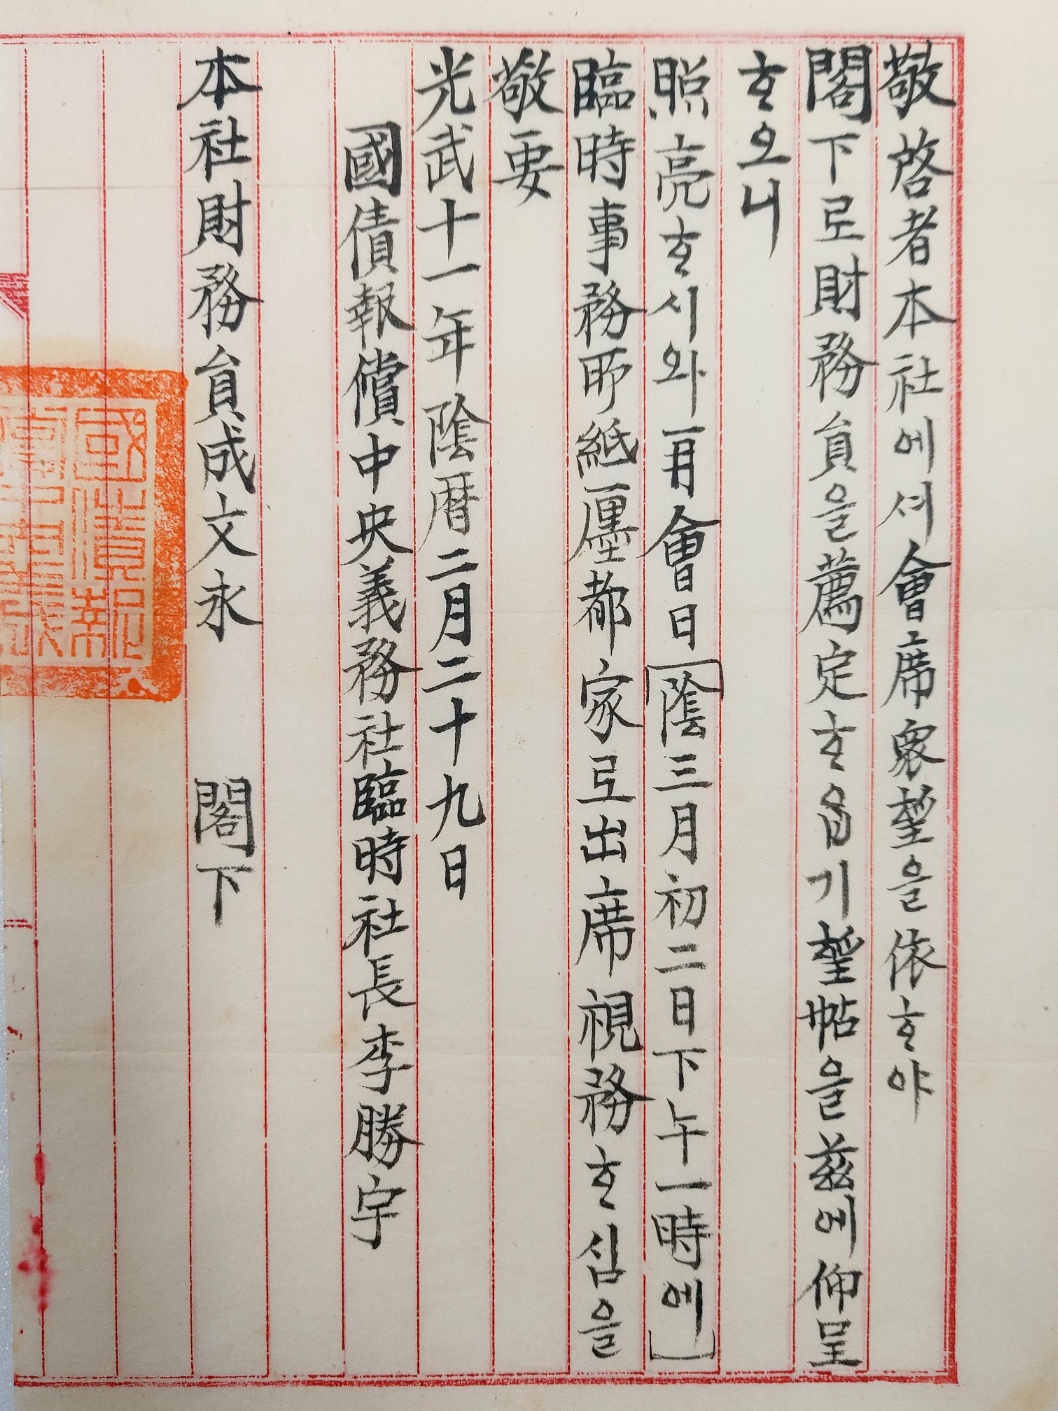 敬啓者本社에셔會席衆望을依ᄒᆞ야
閣下로財務員을薦定ᄒᆞ읍기望帖을玆에仰呈
ᄒᆞ오니
照亮ᄒᆞ시와再會日[陰三月初二日下午一時에]
臨時事務所紙廛都家로出席視務ᄒᆞ심을
敬要
光武十一年陰曆二月二十九日
國債報償中央義務社臨時社長李勝宇
本社財務員成文永 閣下
國債報